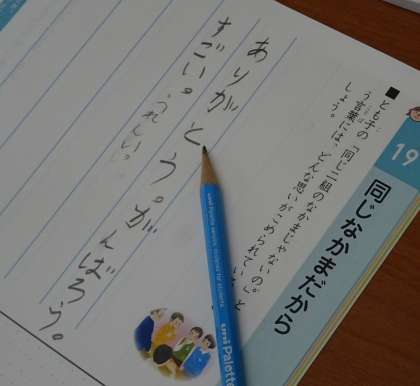 19 同じなかまだから
■とも子の「同じ二組のなかまじゃないの。」と
う言葉には、どんな思いがこめられてい
しょう。
ありがとう。がんばろう。
すごい。うれしい。
uni Palette